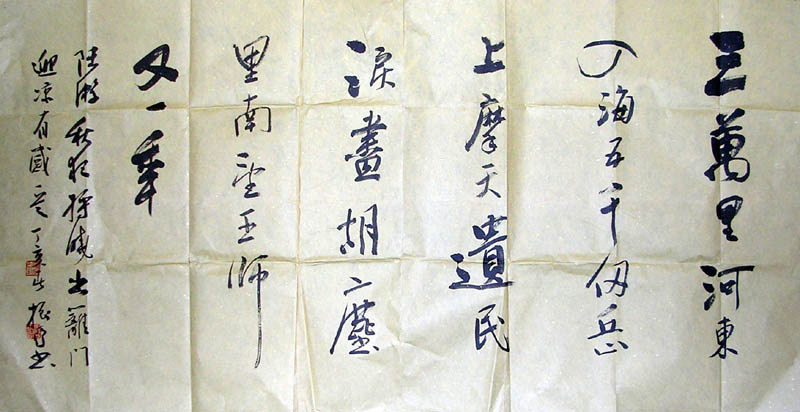 三萬里河東
入海五千仞岳
上摩天遺民
淚盡胡塵
里南望王師
又一年
陸游秋夜將曉出籬門
迎凉有感 丁亥年振书